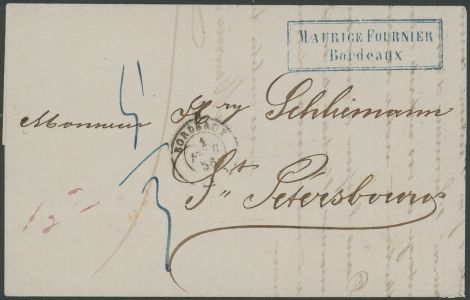 MAURICE FOURNIER
Bordeaux
Monsieur Hry Schliemann
BORDEAUX
1
56
St Petersbourg